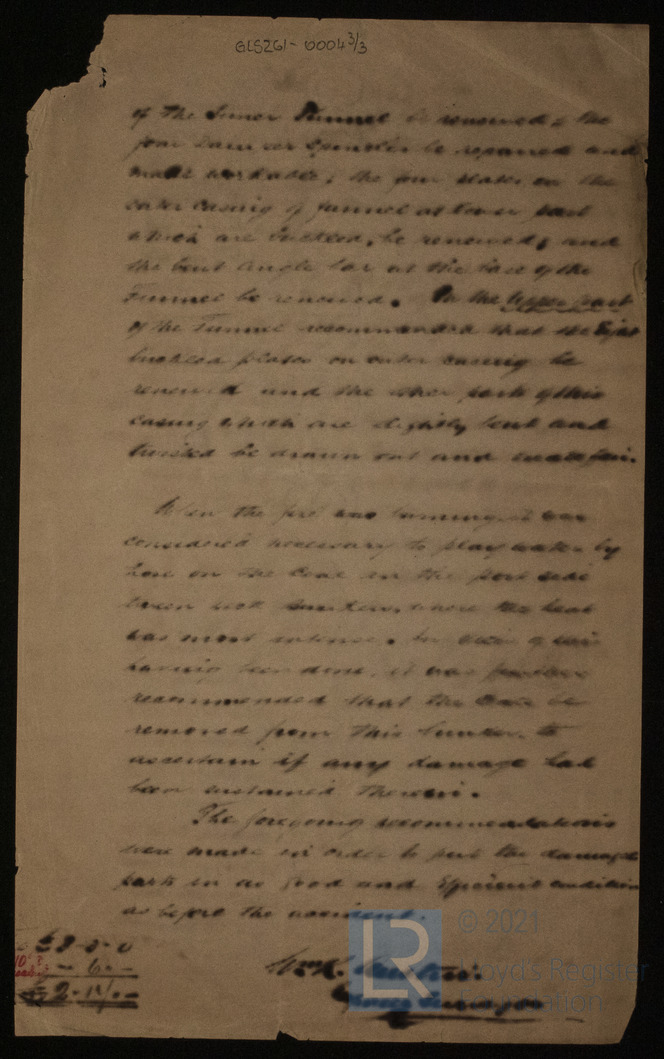 GLS261-0004 3/3
of the Inner Funnel be renewed & the
four Damper Spindles be repaired and
made workable; the four plates on the
outer casing of funnel at lower part
which are buckled, be renewed; and
the bent angle bar at the base of the
Funnel be renewed. On the Upper part
of the Funnel recommended that the
buckled plates on outer casing be
renewed and the other parts of this
casing which are slightly bent and
twisted be drawn out and made fair.
When the fire was burning it was
considered necessary to play water by
hose on the Coal in the port side
bunker, where the heat
was most intense. In view of this
having been done, it was further
recommended that the Coal be
removed from this bunker, to
ascertain if any damage had
been sustained therein.
The foregoing recommendations
were made in order to put the damaged
parts in as good and efficient condition
as before the accident.
© 2021
LR
Lloyd's Register
Foundation